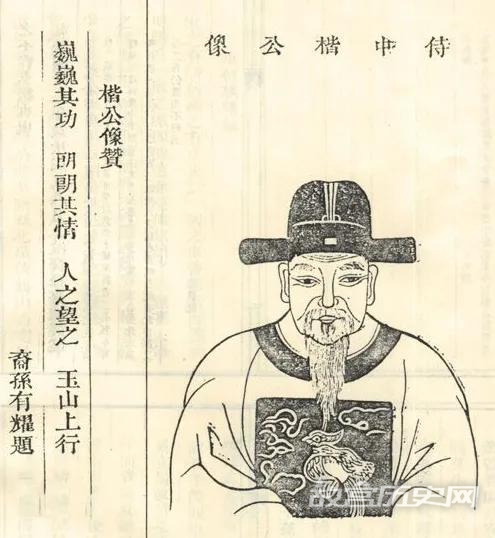 侍中楷公像
楷公像贊
巍巍其功 朗朗其情 人之望之 玉山上行
裔孫有耀題
故宫历史网